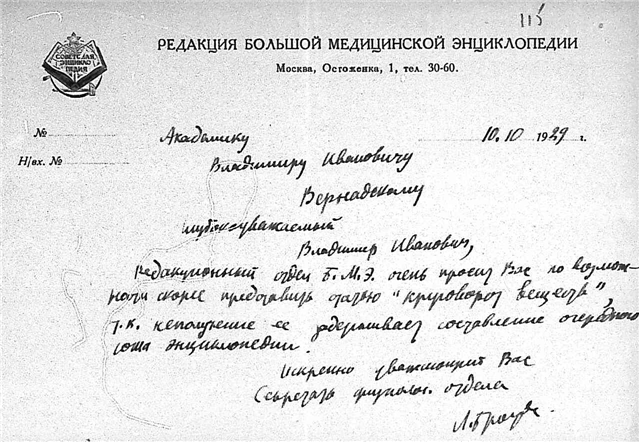 115
РЕДАКЦИЯ БОЛЬШОЙ МЕДИЦИНСКОЙ ЭНЦИКЛОПЕДИИ
СОВЕТСКАЯ
ЭНЦИКЛО
ПЕДИЯ
Москва, Остоженка, 1, тел. 30-60.
№
Академику
10.10 1929 г.
Н/вх. №
Владимиру Ивановичу
Вернадскому
Глубокоуважаемый
Владимир Иванович,
Редакционный отдел Б.М.Э. очень просит Вас по возмож-
ности скорее представить статью "круговорот веществ",
т.к. неполучение ее задерживает составление очередного
тома энциклопедии.
Искренно уважающий Вас
Секретарь отдела